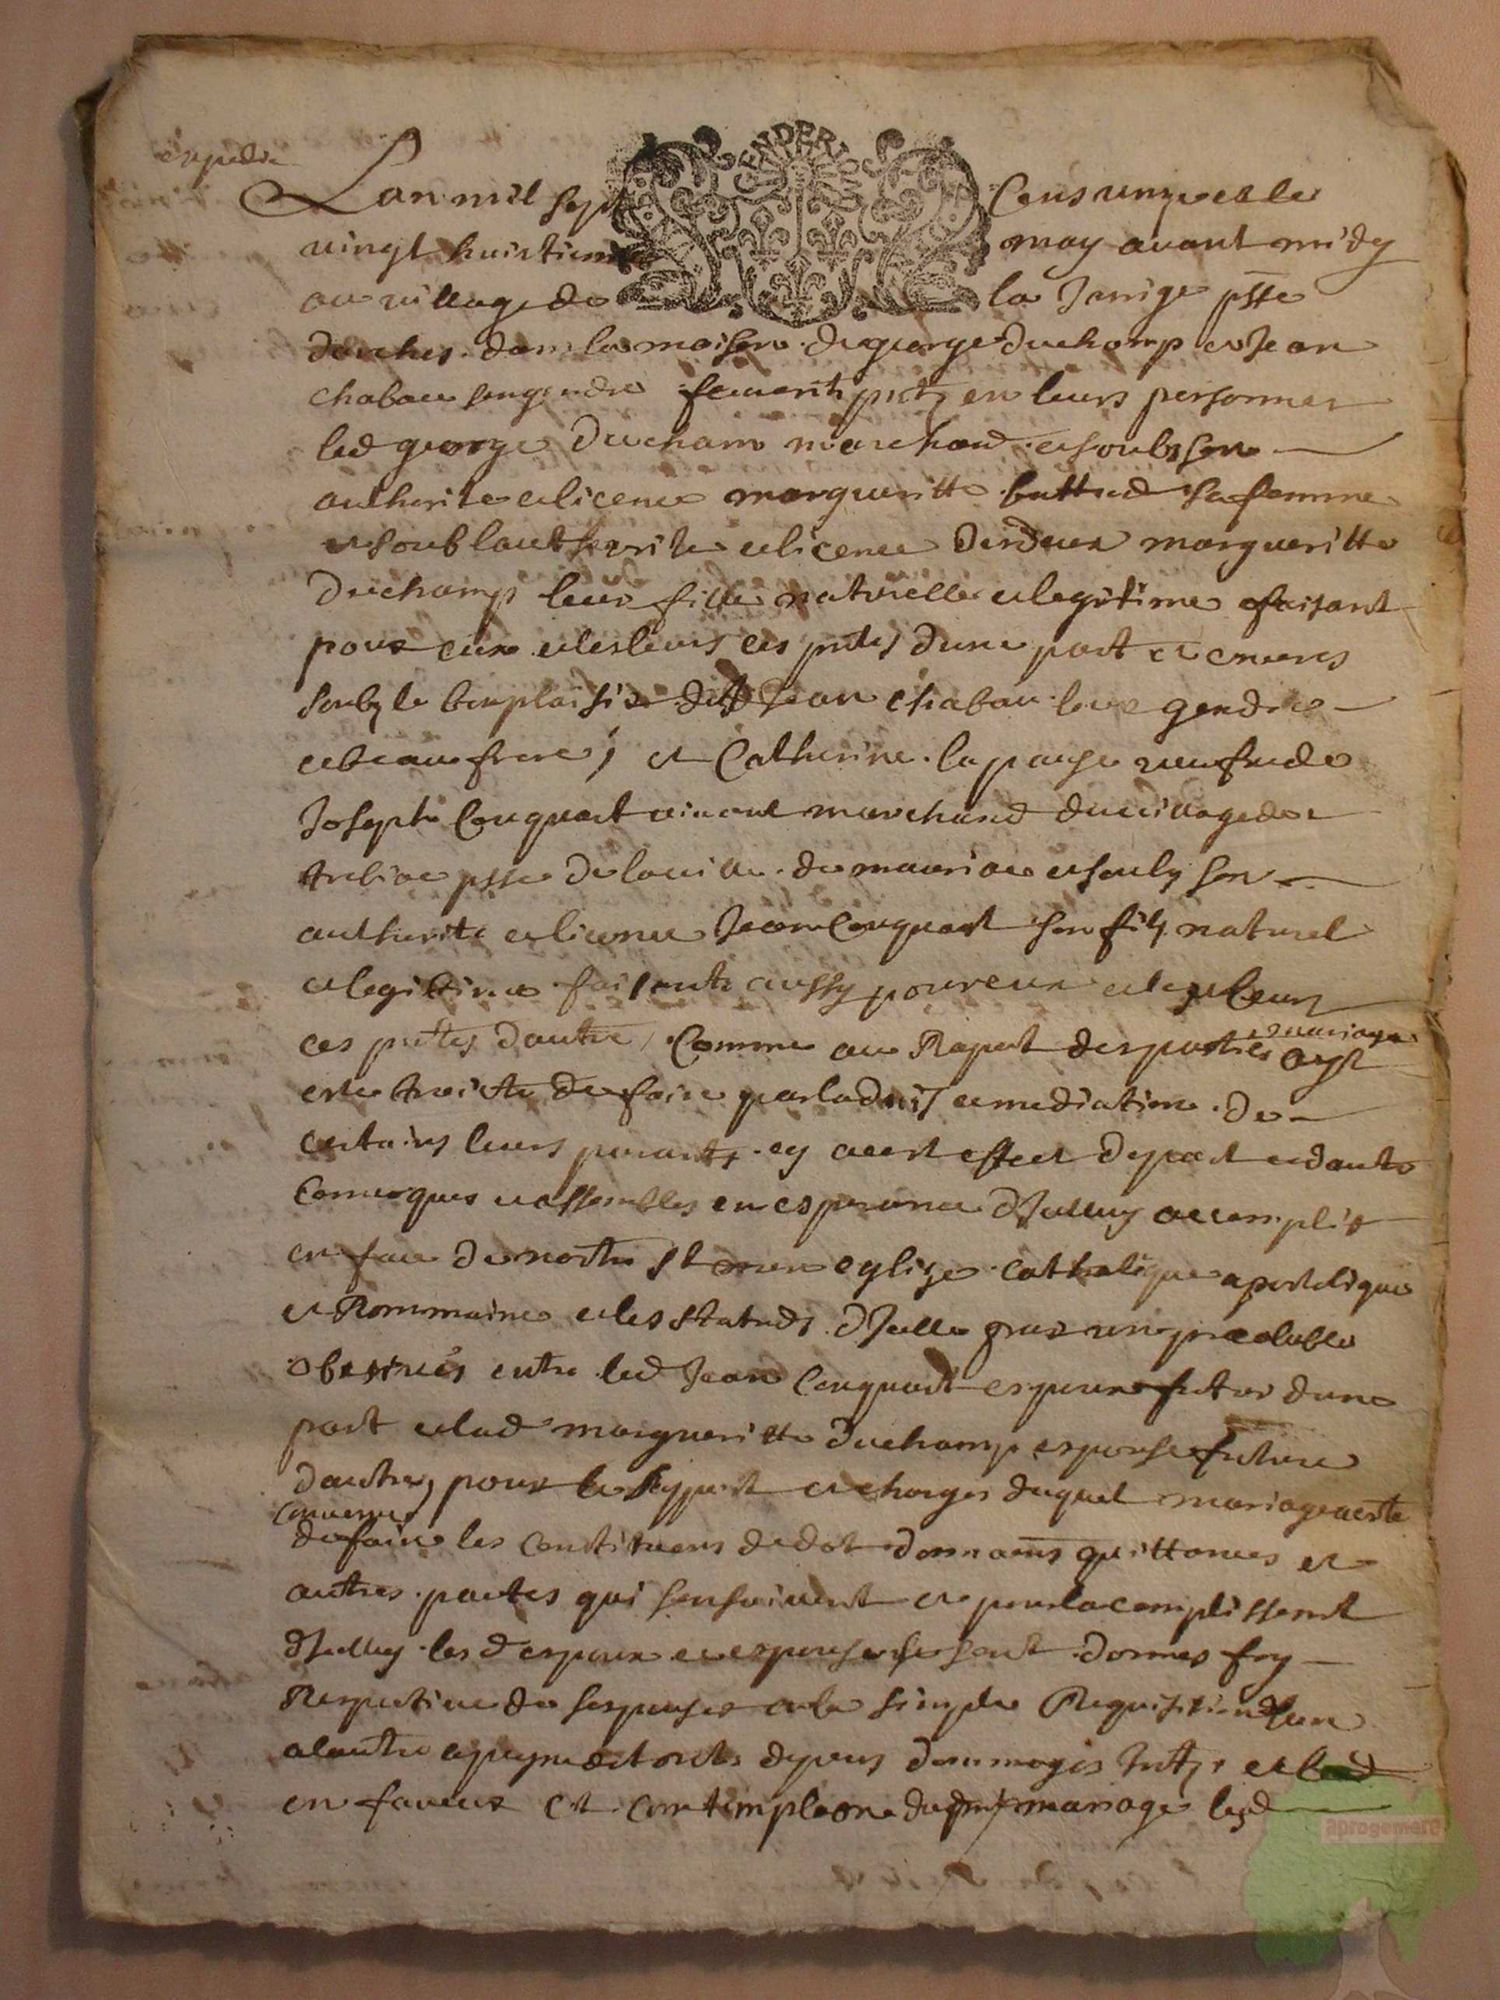 expedie
GENDERIOM
Lan mil sept cens unze et le
vingt huistieme may avant midy
au village de la Jarrige psse
darches dans la maison de george duchamp et Jean
chabau son gendre feurent pntz en leurs personnes
led george Ducham marchand et soubs son
authorite et licence margueritte buttud sa femme
et soub lautherite et licence desdeux margueritte
Duchamp leur fille naturelle et legitime faisant
pour eux et les leurs es pntes dune part et encores
soubz le bon plaisir dud Jean chabau leur gendre
et beau frere, et Catherine la parge veufve de
Joseph Couquart vivant marchand du village de
psse de la ville de mauriac et soubz son
authorite et licence Jean Couquart son filz naturel
et legitime faisants aussy pour eux et les leurs
es pntes dautre, Comme au Raport des parties mariage ayt
este traicte de faire par ladvis et mediation de
certains leurs parants ey a cest effect de part et dautre
Convoques et assembles en esperance dIcelluy accomplir
en face de nostre Ste mere eglise catholique apostolique
et Rommaine et les statuds dIcelle prealable
observés entre led Jean Couquart espoux futur dune
part et lad margueritte duchamp espouse future
dautre, pour le suport et charges duquel mariage a este
convenu
de faire les constituons de dot donnaons quittances et
autres pactes qui sensuivent et pour lacomplissemt
dIcelluy lesd espoux et espouse se sont donnes foy
Respective de sespouser a la simple Requisition de lun
a lautre a peyne de touts depens dommages Intz et
en faveur et contemplaon dud pnt mariage lesd
aprogemere